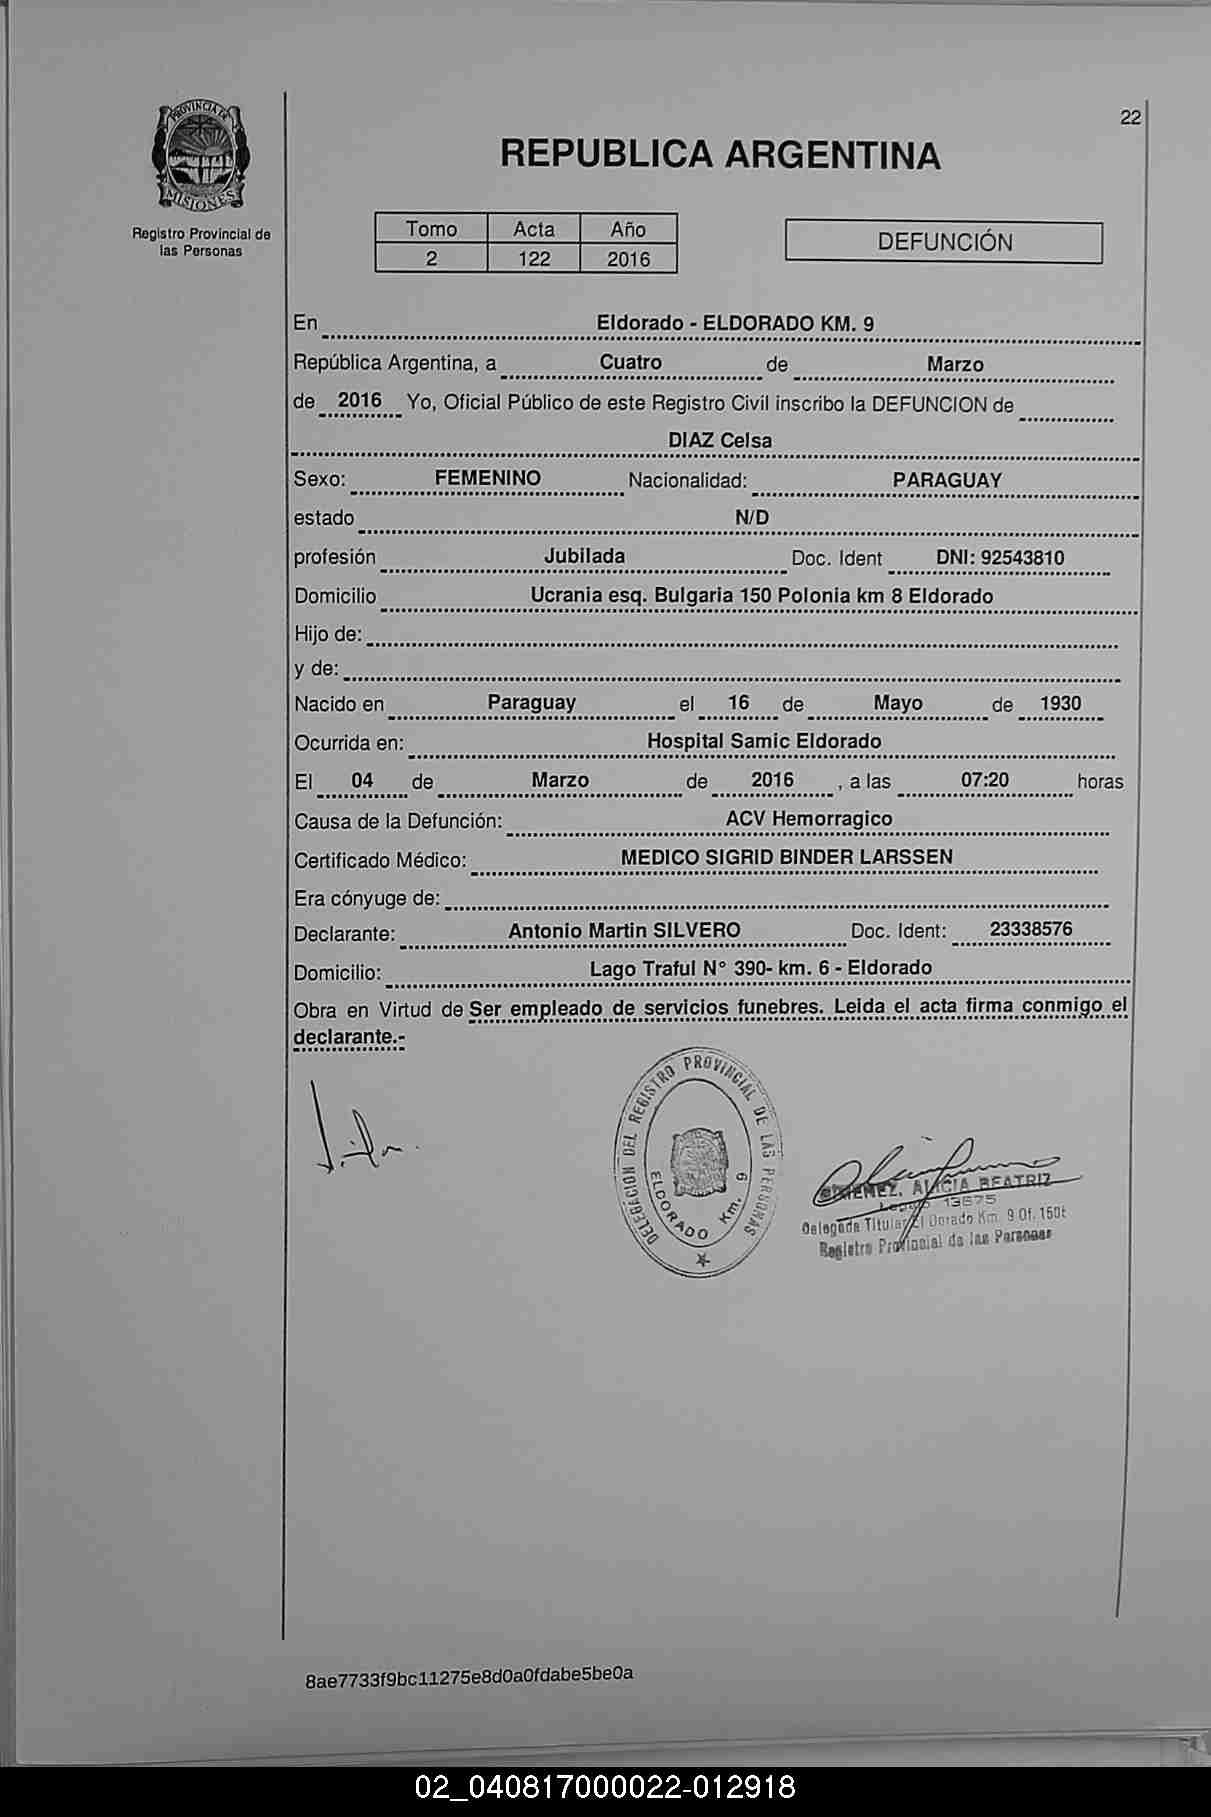 22
PROVINCIA DE
MISIONES
Registro Provincial de
las Personas
REPUBLICA ARGENTINA
Tomo Acta Año
2 122 2016
DEFUNCIÓN
En Eldorado - ELDORADO KM. 9
República Argentina, a Cuatro de Marzo
de 2016 Yo, Oficial Público de este Registro Civil inscribo la DEFUNCION de
DIAZ Celsa
Sexo: FEMENINO Nacionalidad: PARAGUAY
estado N/D
profesión Jubilada Doc. Ident DNI: 92543810
Domicilio Ucrania esq. Bulgaria 150 Polonia km 8 Eldorado
Hijo de:
y de:
Nacido en Paraguay el 16 de Mayo de 1930
Ocurrida en: Hospital Samic Eldorado
El 04 de Marzo de 2016 , a las 07:20 horas
Causa de la Defunción: ACV Hemorragico
Certificado Médico: MEDICO SIGRID BINDER LARSSEN
Era cónyuge de:
Declarante: Antonio Martin SILVERO Doc. Ident: 23338576
Domicilio: Lago Traful N° 390- km. 6 - Eldorado
Obra en Virtud de Ser empleado de servicios funebres. Leida el acta firma conmigo el
declarante.-
DELEGACION DEL REGISTRO PROVINCIAL DE LAS PERSONAS
ELDORADO Km. 9
GIMENEZ, ALICIA BEATRIZ
Legajo 13675
Delegada Titular El Dorado Km. 9 Of. 150t
Registro Provincial de las Personas
8ae7733f9bc11275e8d0a0fdabe5be0a
02_040817000022-012918